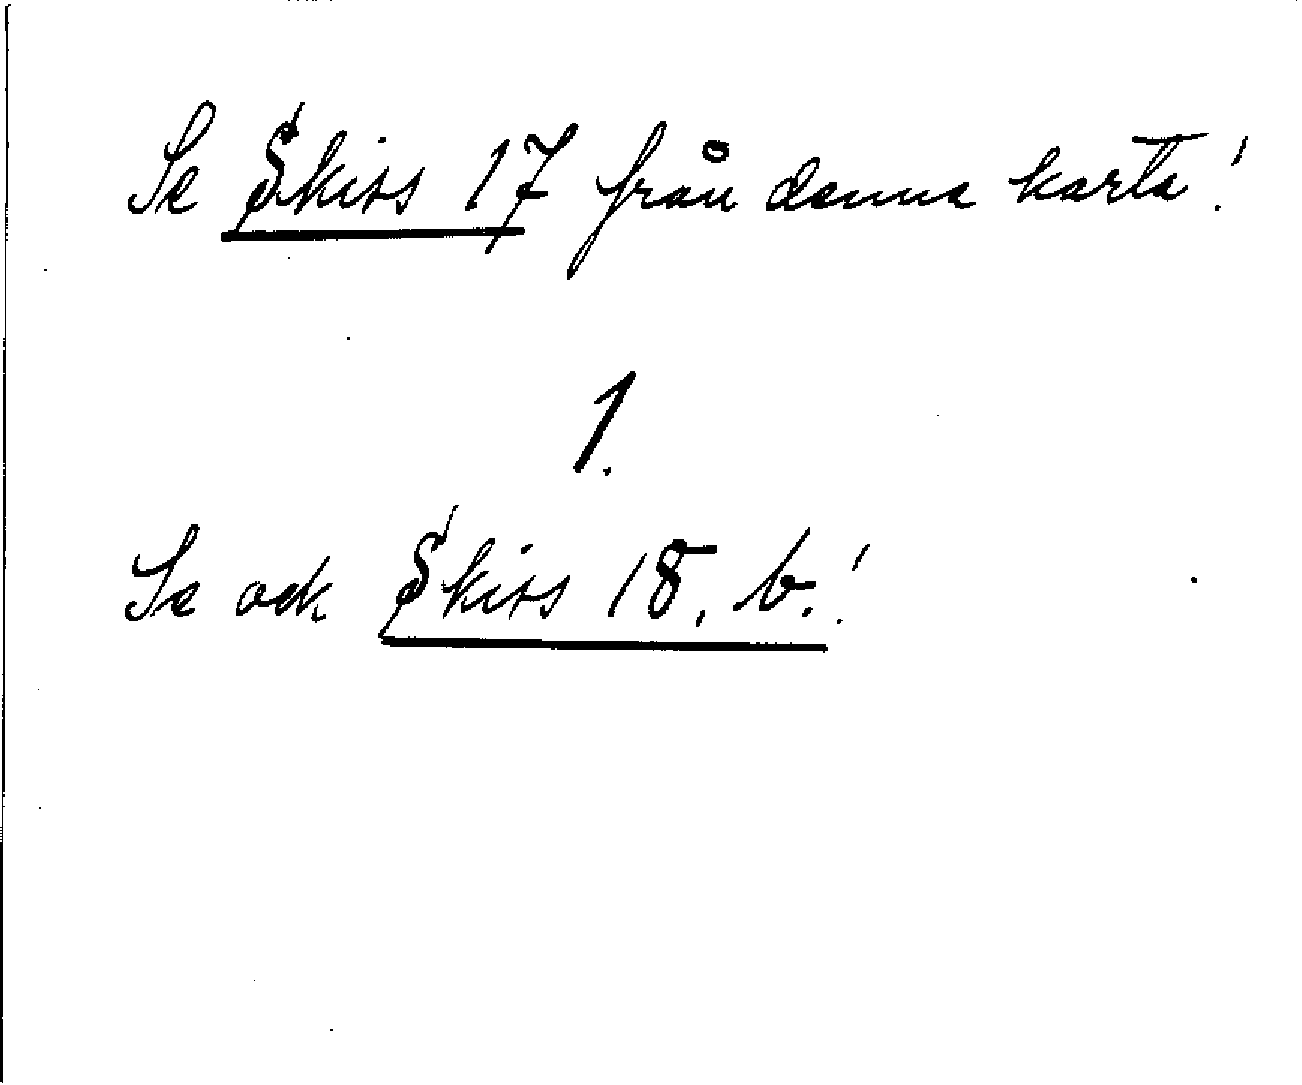 Se Skiss 17 från denna karta!
1.
Se ock Skiss 18, b.!